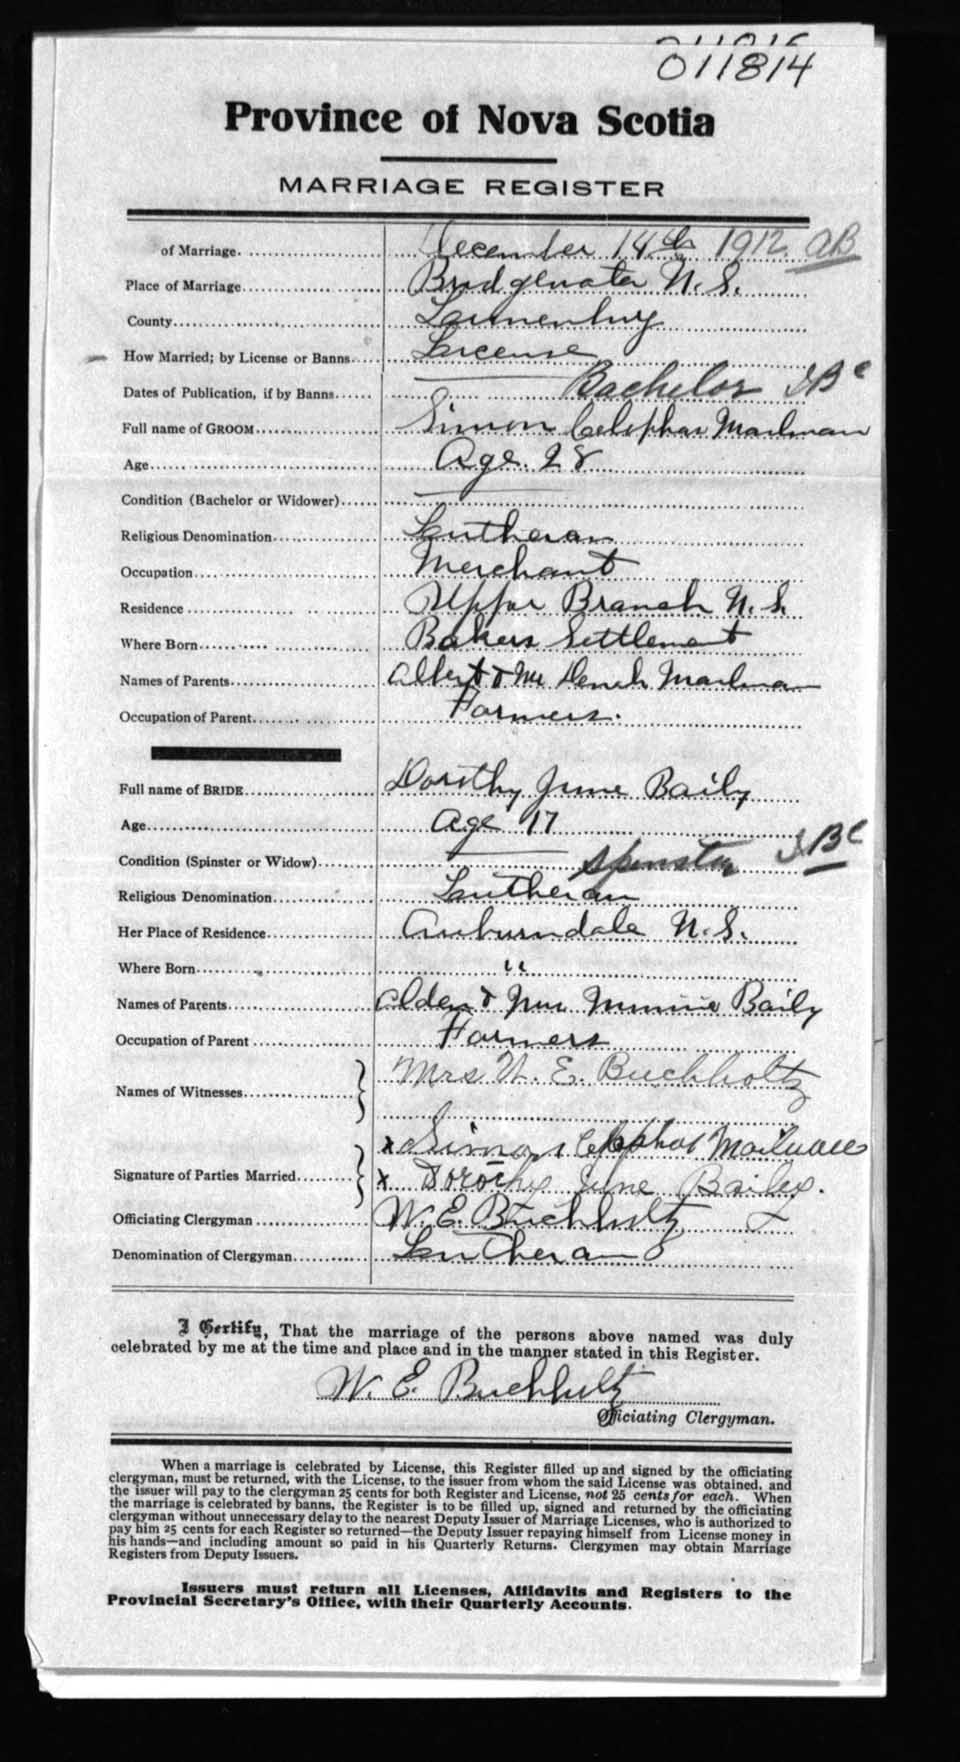 011814
Province of Nova Scotia
MARRIAGE REGISTER
of Marriage. December 14th 1912. AB
Place of Marriage Bridgewater N.S.
County Lunenburg
How Married; by License or Banns License
Dates of Publication, if by Banns Bachelor
Full name of GROOM Simon Celophas Mailman
Age Age. 28
Condition (Bachelor or Widower)
Religious Denomination Lutheran
Occupation Merchant
Residence Upper Branch N.S.
Where Born Bakers Settlement
Names of Parents Albert & Mailman
Occupation of Parent Farmers.
Full name of BRIDE Dorothy June Baily
Age Age 17
Condition (Spinster or Widow) Spinster
Religious Denomination Lutheran
Her Place of Residence Auburndale N.S.
Where Born "
Names of Parents Alden & Minnie Baily
Occupation of Parent Farmers
Names of Witnesses Mrs W. E. Buchholtz
x Simon Celophas Mailman
Signature of Parties Married x Dorothy June Bailey.
Officiating Clergyman W. E. Buchholtz
Denomination of Clergyman Lutheran
I Certify, That the marriage of the persons above named was duly
celebrated by me at the time and place and in the manner stated in this Register.
W. E. Buchholtz
Officiating Clergyman.
When a marriage is celebrated by License, this Register filled up and signed by the officiating
clergyman, must be returned, with the License, to the issuer from whom the said License was obtained, and
the issuer will pay to the clergyman 25 cents for both Register and License, not 25 cents for each. When
the marriage is celebrated by banns, the Register is to be filled up, signed and returned by the officiating
clergyman without unnecessary delay to the nearest Deputy Issuer of Marriage Licenses, who is authorized to
pay him 25 cents for each Register so returned—the Deputy Issuer repaying himself from License money in
his hands—and including amount so paid in his Quarterly Returns. Clergymen may obtain Marriage
Registers from Deputy Issuers.
Issuers must return all Licenses, Affidavits and Registers to the
Provincial Secretary's Office, with their Quarterly Accounts.